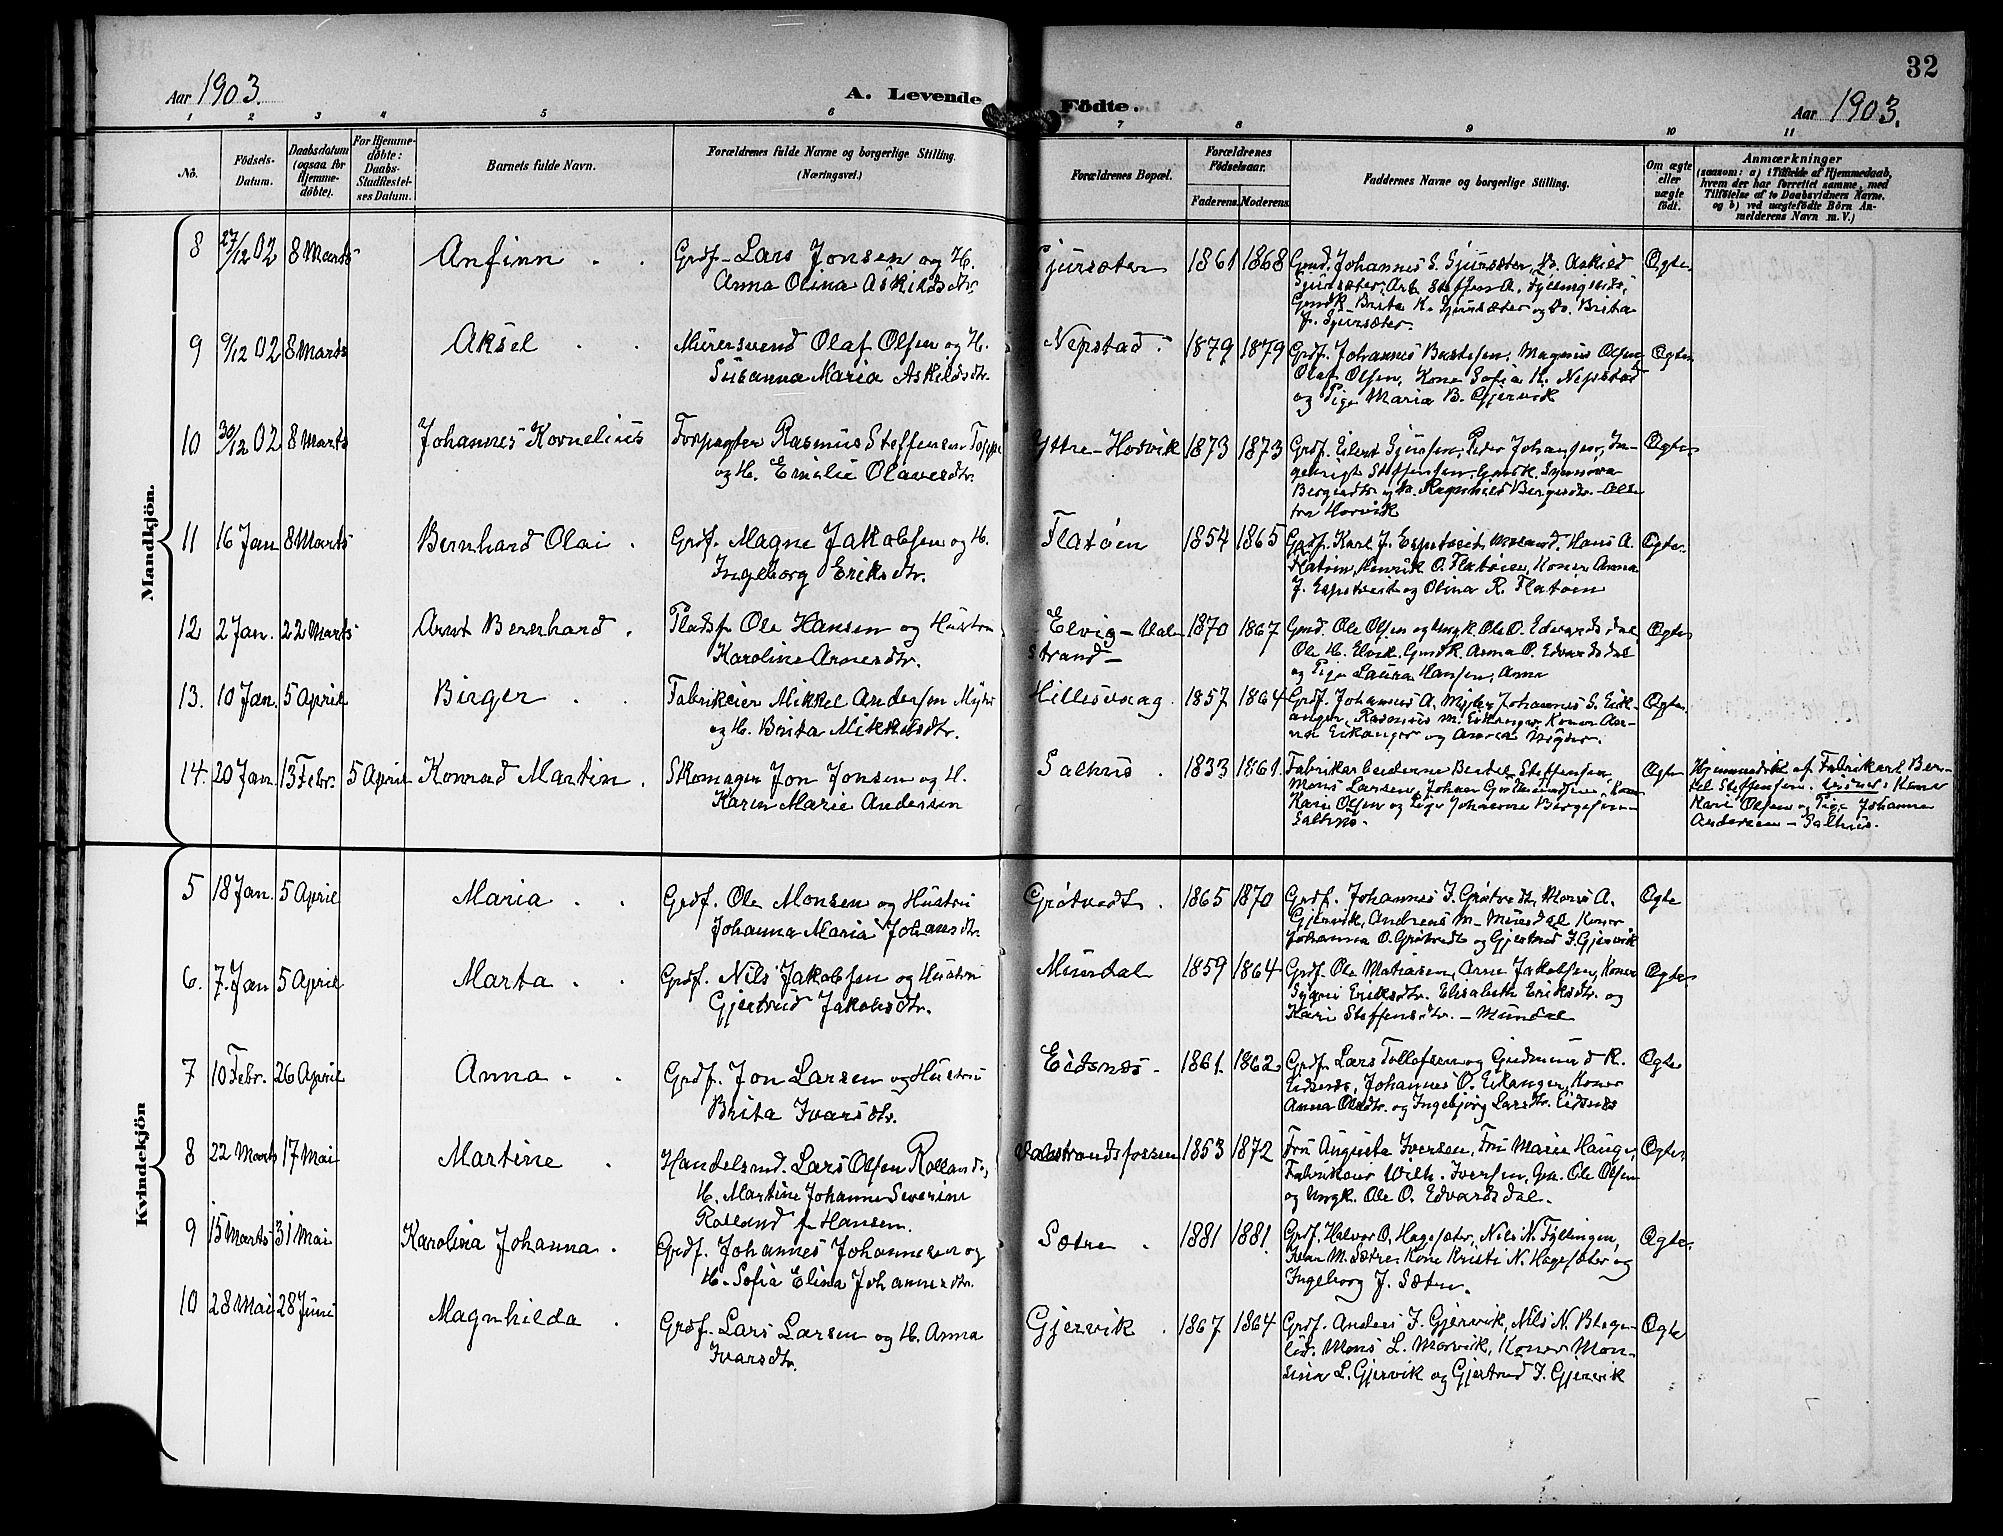 32
Aar 1903.
A. Levende
Födte.
Aar 1903.
1 2 3 4 5 6 7 8 9 10 11
No.
Födsels-Datum.
Daabsdatum (ogsaa for Hjemme-döbte).
For Hjemme-döbte: Daabs-Stadfæstel-ses Datum.
Barnets fulde Navn.
Forældrenes fulde Navne og borgerlige Stilling.
(Næringsvei.)
Forældrenes Bopæl.
Forældrenes Födselsaar.
Faderens. Moderens.
Faddernes Navne og borgerlige Stilling.
Om ægte eller uægte födt.
Anmærkninger
(saasom: a) i Tilfælde af Hjemmedaab,
hvem der har forrettet samme, med
Tilföielse af to Daabsvidners Navne,
og b) ved uægtefödte Börn An-
melderens Navn m. V.)
Mandkjön.
8 27/12 02 8 Marts Anfinn Grdf. Lars Jonsen og H.
Anna Olina Askildsdtr. Sjursæter 1861 1868 Gmd. Johannes S. Sjursæter, Askild
Sjursæter, Arb. Steffen A.
Gmdk. Brita K. Sjursæter og Brita
J. Sjursæter. Ægte
9 9/12 02 8 Marts Aksel Murersvend Olaf Olsen og H.
Susanna Maria Askildsdtr. Nepstad 1879 1879 Grdf. Johannes Magnus Olsen
Olaf Olsen, Kone Sofia K. Nepstad
og Pige Maria B. Gjervik Ægte
10 30/12 02 8 Marts Johannes Kornelius Forpagter Rasmus Steffensen Toppe
og H. Emilie Olavesdtr. Yttre-Hordvik 1873 1873 Grdf. Eilert Sjursen, Peder Johansen, In-
gebrigt Steffensen, Gmdk. Synnøva
Bergesdtr. og Ragnhild Bergesdtr. – Alle
Ægte
11 16 Jan 8 Marts Bernhard Olai Grdf. Magne Jakobsen og H.
Ingeborg Eriksdtr. Flatøen 1854 1865 Grdf. Karl J. Espetveit, Hans A.
Flatøen, Henrik O. Flatøien, Koner Anna
J. Espetveit og Olina R. Flatøien Ægte
12 2 Jan. 22 Marts Arnt Bernhard Pladsf. Ole Hansen og Hustru
Karoline Arnesdtr. Elvig – Val-
strand – 1870 1867 Gmd. Ole Olsen og Ungk. Ole O. Edvardsdal
Ole H. Elvik, Gmdk. Anna O. Edvardsdal
og Pige Laura Hansen, Ægte
13. 10 Jan. 5 April Birger Fabrikeier Mikkel Andersen Mjster
og H. Brita Mikkelsdtr. Hillesvaag 1857 1864 Grdf. Johannes A. Mjster, Johannes S. Eik-
anger, Rasmus M. Eikanger, Koner An-
na Eikanger og Anna Ægte
14. 20 Jan. 13 Febr. 5 April Konrad Martin Skomager Jon Jonsen og H.
Karen Marie Andersen Salhus 1833 1861 Fabrikarbeiderne Bertel Steffensen,
Mons Larsen, Johan Kone
Kari Olsen og Pige Johanne Bergesen –
Salhus. Ægte Hjemmedøbt af Fabrikarb. Ber-
tel Steffensen. Kone
Kari Olsen og Pige Johanne
Andersen – Salhus.
Kvindekjön
5 18 Jan. 5 April Maria Grdf. Ole Monsen og Hustru
Johanna Maria Johansdtr. Grøtvedt 1865 1870 Grdf. Johannes J. Grøtvedt, Mons A.
Gjervik, Andreas M. Mundal Koner
Johanna O. Grøtvedt og Gjertrud J. Gjervik Ægte
6. 7. Jan 5 April Marta Grdf. Nils Jakobsen og Hustru
Gjertrud Jakobsdtr. Mundal 1859 1864 Grdf. Ole Matiasen, Arne Jakobsen, Koner
Sygni Eriksdtr. Elisabeth Eriksdtr. og
Kari Steffensdtr. – Mundal Ægte
7 10 Febr. 26 April Anna Grdf. Jon Larsen og Hustru
Brita Ivarsdtr. Eidsnæs 1861 1862 Grdf. Lars Tollefsen og Gudmund R.
Eidsnæs, Johannes O. Eikanger, Koner
Anna Olsdtr. og Ingebjørg Larsdtr. Eidsnæs Ægte
8 22 Marts 17 Mai Martine Handelsmd. Lars Olsen Rolland og
H. Martine Johanne Severine
Rolland f. Hansen. Valestrandsfossen 1853 1872 Fru Augusta Iversen, Fru Marie Hauge,
Fabrikeier Wilh. Iversen, Ole Olsen
og Ungk. Ole O. Edvardsdal. Ægte
9 15 Marts 31 Mai Karolina Johanna Grdf. Johannes Johannesen og
H. Sofia Elina Johannesdtr. Sætre 1881 1881 Grdf. Halvor O. Hagesæter, Nils N. Fyllingen,
Ivar M. Sætre, Kone Kristi N. Hagesæter og
Ingeborg J. Sætre. Ægte
10 28 Mai 28 Juni Magnhilda Grdf. Lars Larsen og H. Anna
Ivarsdtr. Gjervik 1867 1864 Grdf. Anders J. Gjervik, Nils N.
Mons L. Marvik, Koner Mon-
sina L. Gjervik og Gjertrud J. Gjervik Ægte